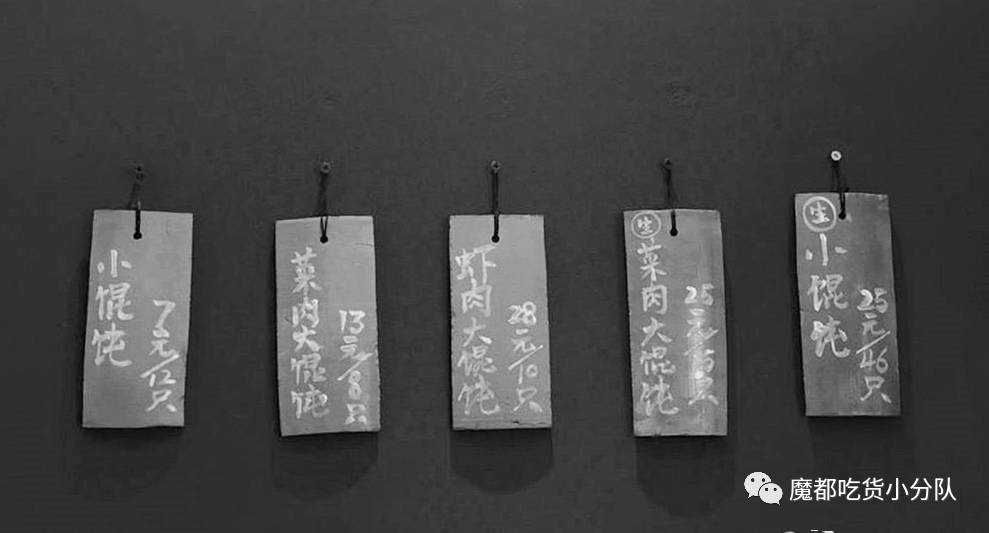 小馄饨
7元/12只
菜肉大馄饨
13元/8只
虾肉大馄饨
28元/10只
生
菜肉大馄饨
25元/15只
生
小馄饨
25元/46只
魔都吃货小分队